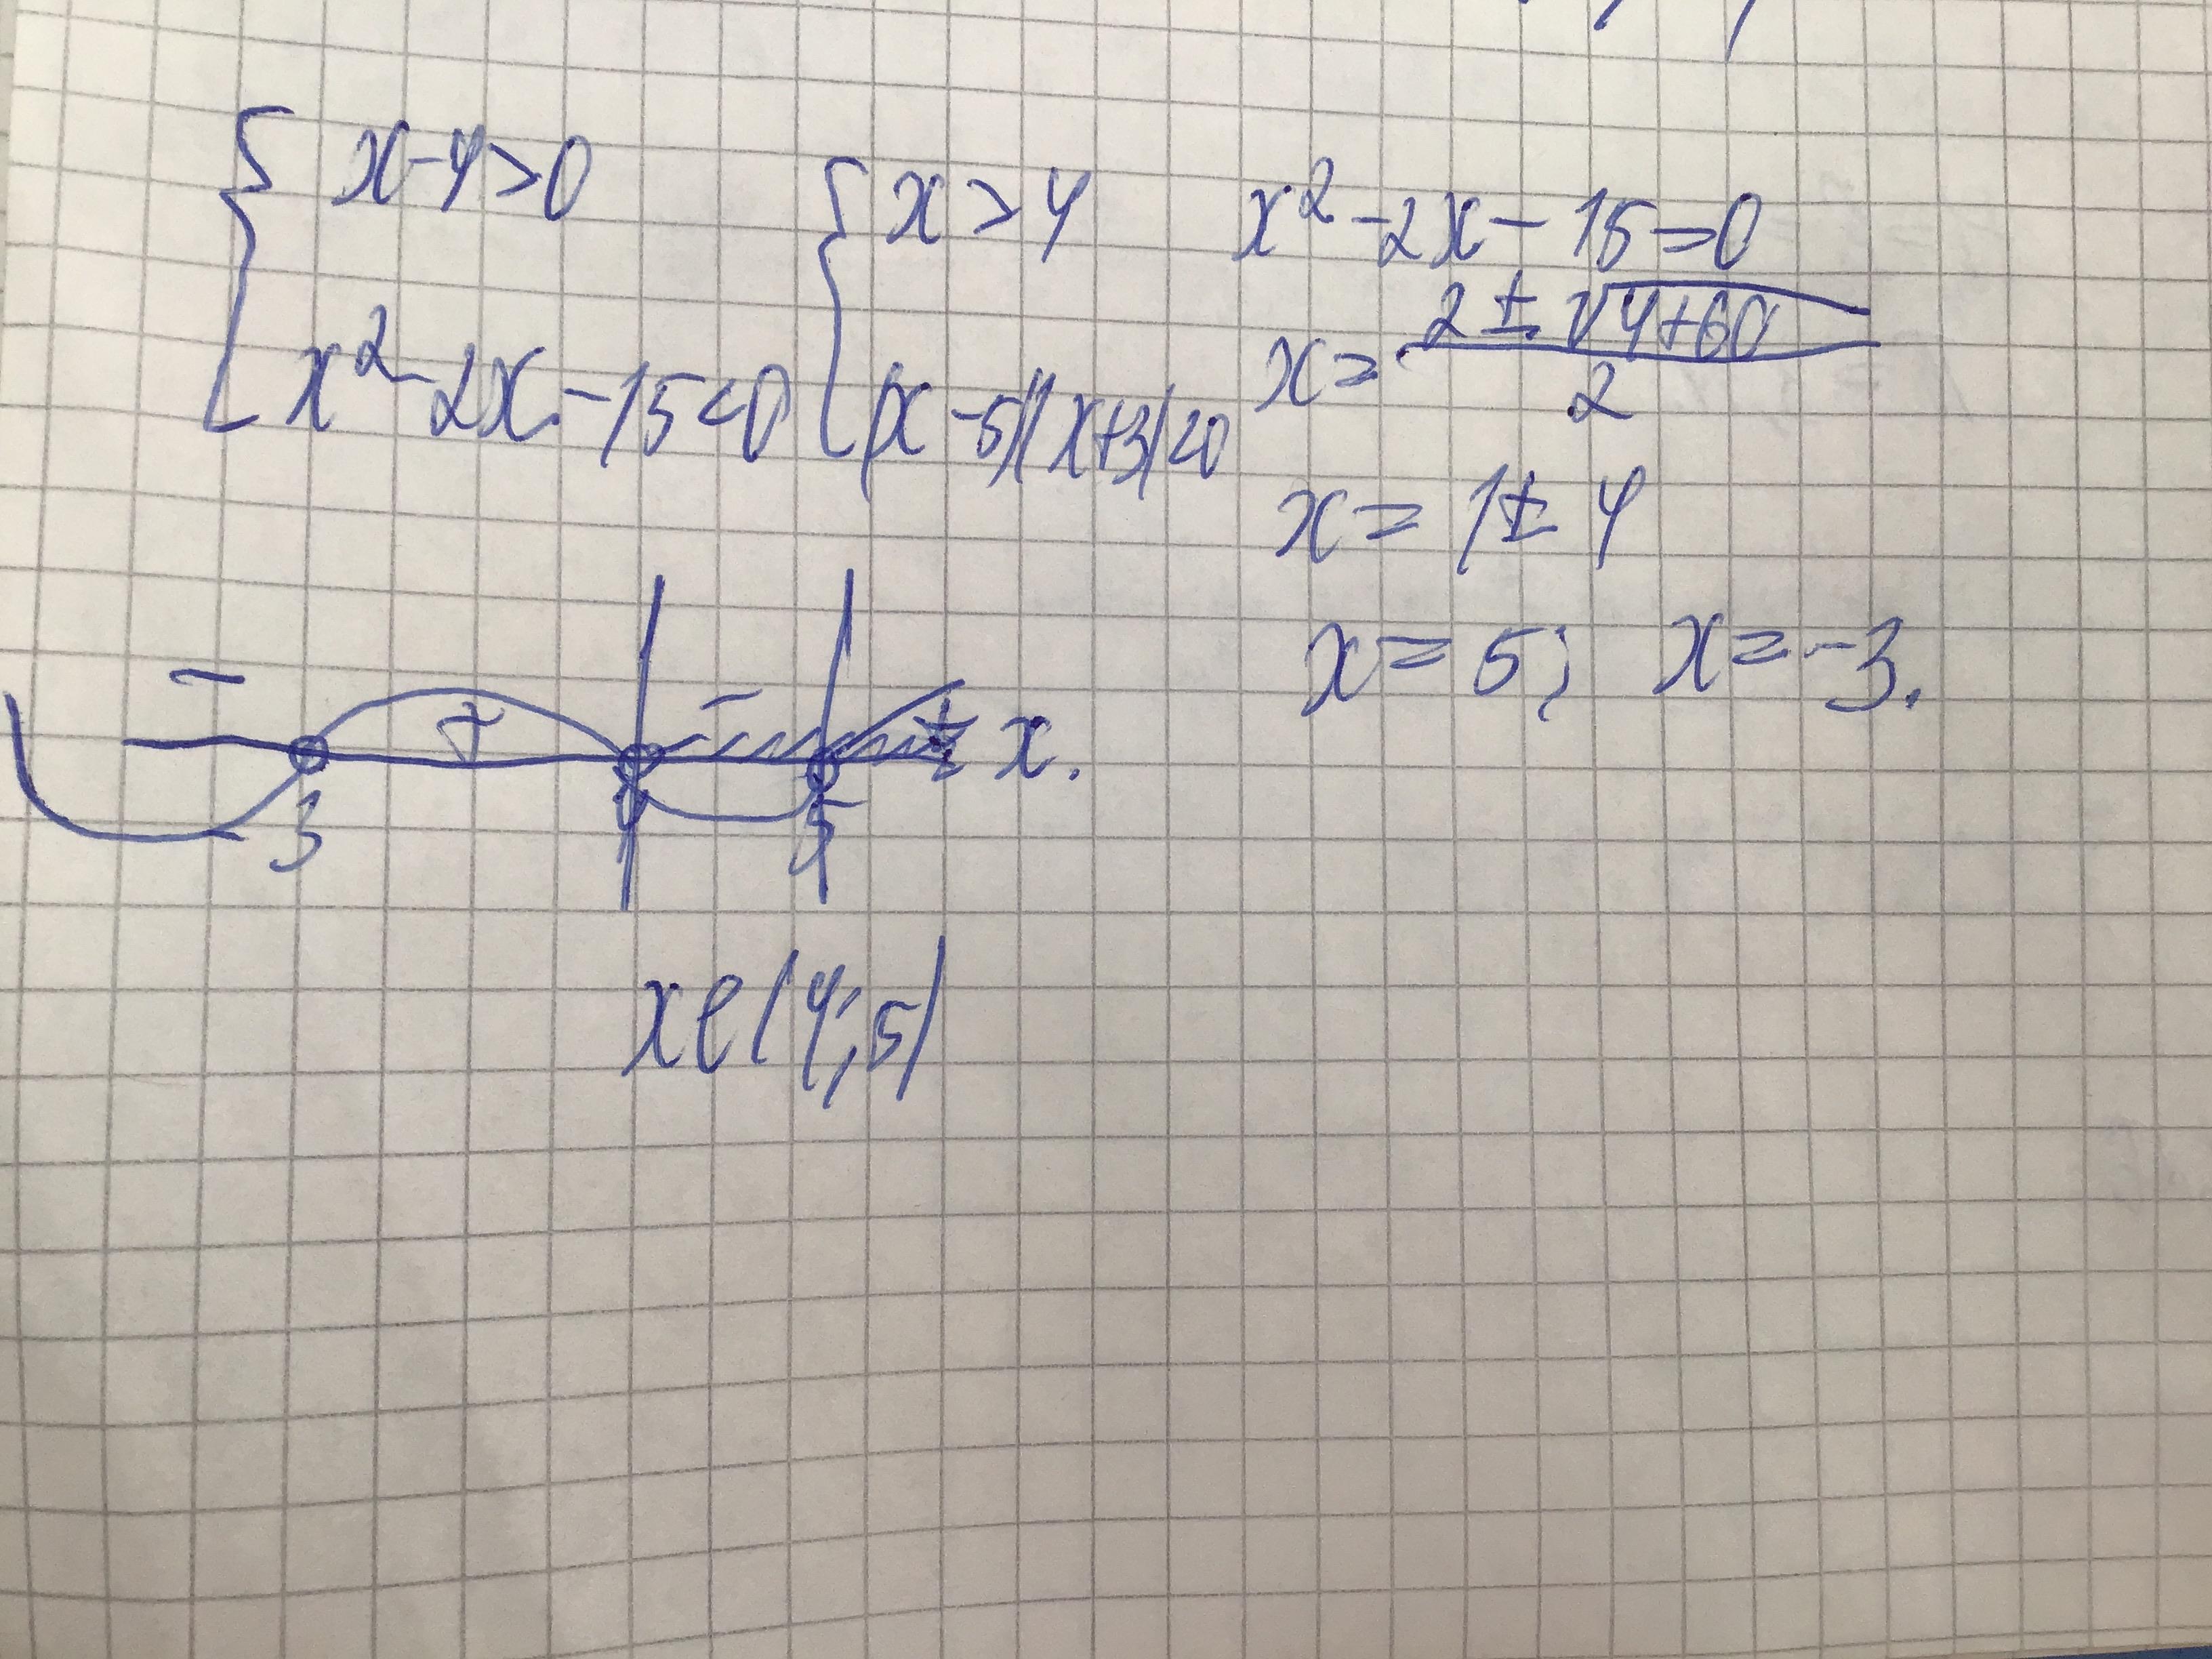 { x-4>0
x²-2x-15<0
{ x>4
(x-5)(x+3)<0
x²-2x-15=0
x= (2±√(4+60))/2
x=1±4
x=5; x=-3.
- + - + x.
-3 4 5
x∈(4;5)